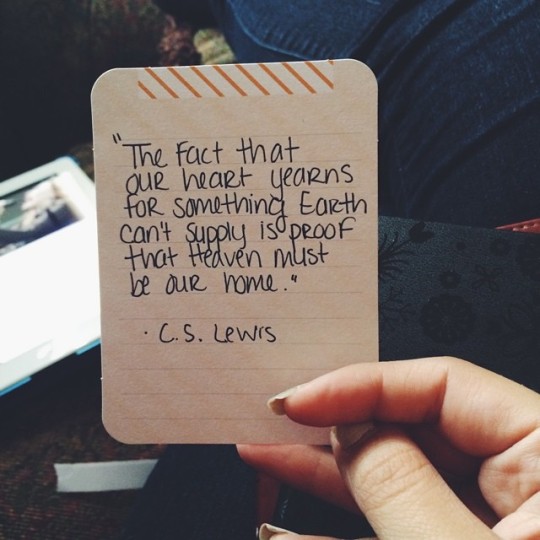 "The Fact that
our heart yearns
for something Earth
can't supply is proof
that Heaven must
be our home."
· C.S. Lewis